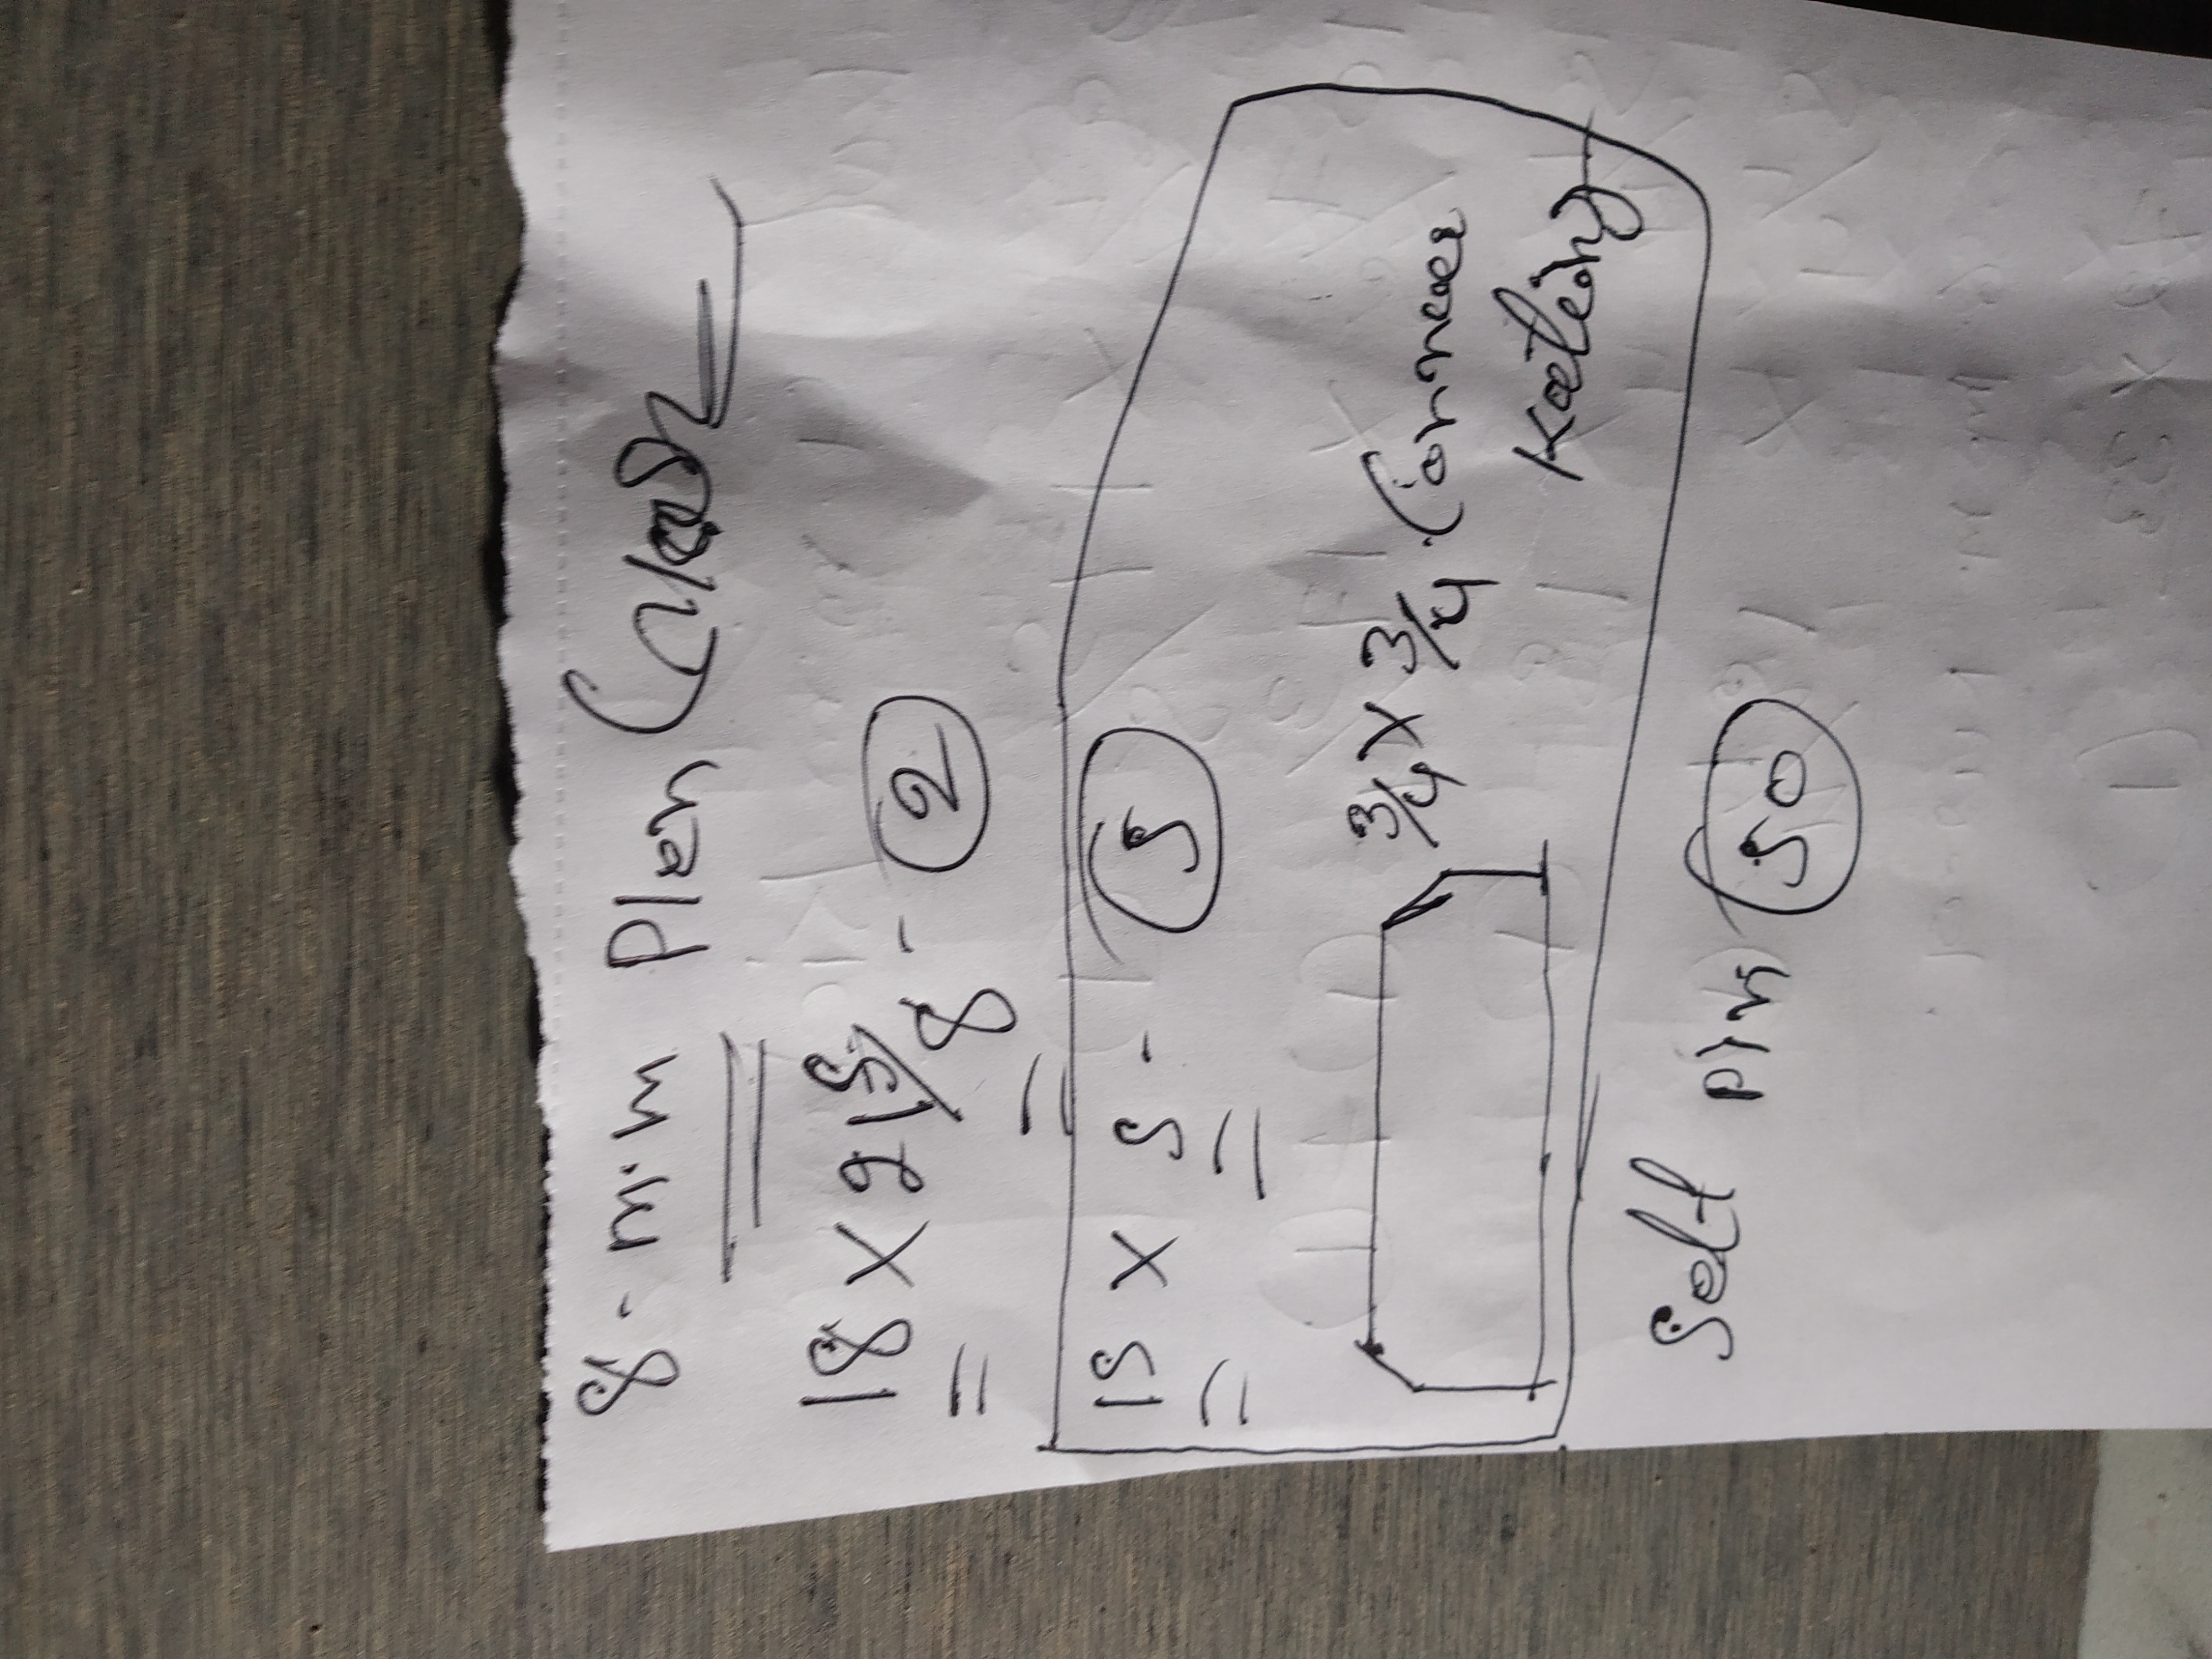 8-m.m Plen
18 x 21 5/8 - 2
15 x 5 - 5
3/4 x 3/4 Corner
Kating
Self pin 50